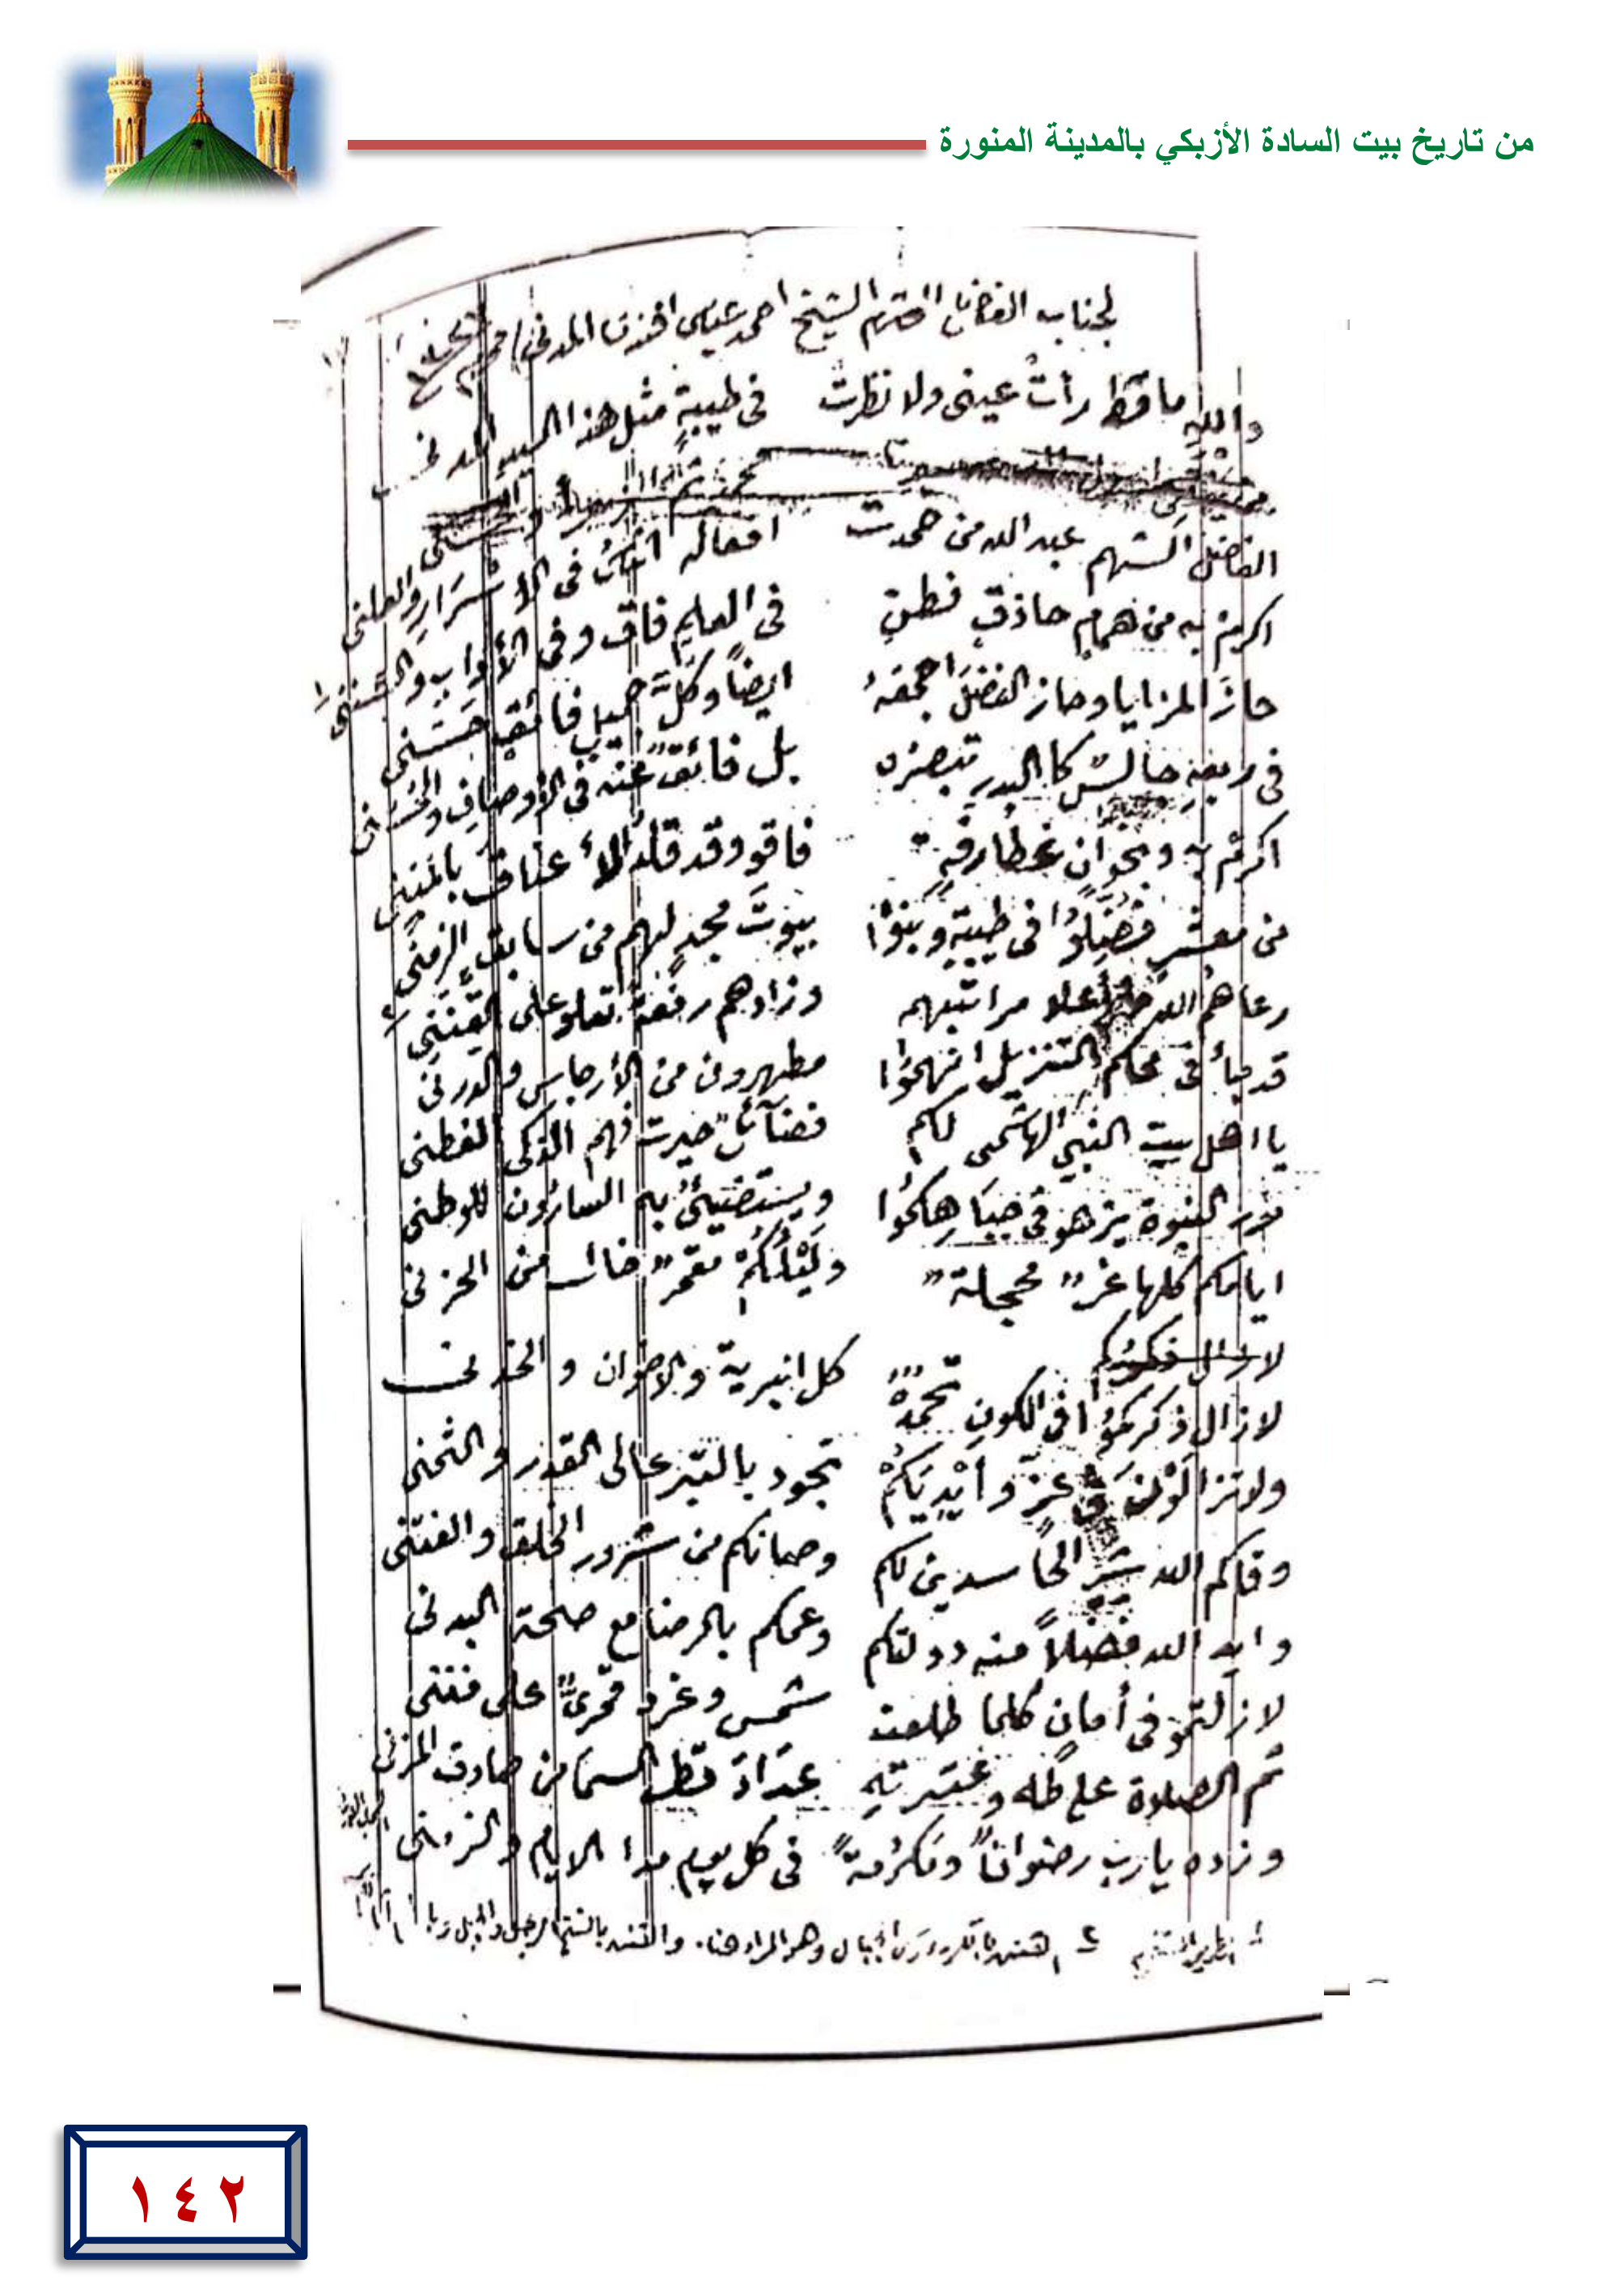 من تاريخ بيت السادة الأزبكي بالمدينة المنورة
لجناب الفاضل المحترم الشيخ احمد عباس افندى المدنى
والله ما قط رأت عينى ولا نظرت في طيبة مثل هذا السيد المدنى
الفاضل الشهم عبد الله من حمدت افعاله في الأسرار والعلنى
اكرم به من همام حاذق فطن في العلم فاق وفي الأداب والسننى
حاز المزايا وحاز الفضل اجمعه ايضاً وكل جميل فائق حسنى
في جالس كالبدر تبصره بل فائق عنه في الأوصاف والحسنى
اكرم به وبخوان غطارفة فاقو وقد قلد الأعناق بالمننى
من معشر فضلوا في طيبة وبنوا بيوت مجد لهم من سابق الزمنى
رعاهم الله اعلا مراتبهم وزادهم رفعة تعلو على القننى
قد جاء في محكم التنزيل انهموا مطهرون من الأرجاس والدرنى
يا اهل بيت النبي الهاشمى لكم فضائل حيرت فهم الذكى الفطنى
نور النبوة يزهو في جباهكموا ويستضيئ به السارون للوطنى
ايامكم كلها غر محجلة وليلكم مقمر خال من الحزنى
لا زال ذكركموا في الكون تحمده كل البرية والاخوان والخدنى
ولا تزالون في عز وأيديكم تجود بالتبر عالى القدر والثمنى
وقاكم الله شر الحاسدين لكم وصانكم من شرور الخلق والفتنى
وايد الله فضلاً منه دولتكم وعمكم بالرضا مع صحة البدنى
لا زلتمو في أمان كلما طلعت شمس وغرد قمرى على فننى
ثم الصلاة على طه وعترته عداد قطر السما من صادق المزنى
وزده يا رب رضواناً وتكرمة في كل يوم مدا الايام والزمنى
الجبال وهو المراد هنا
١٤٢